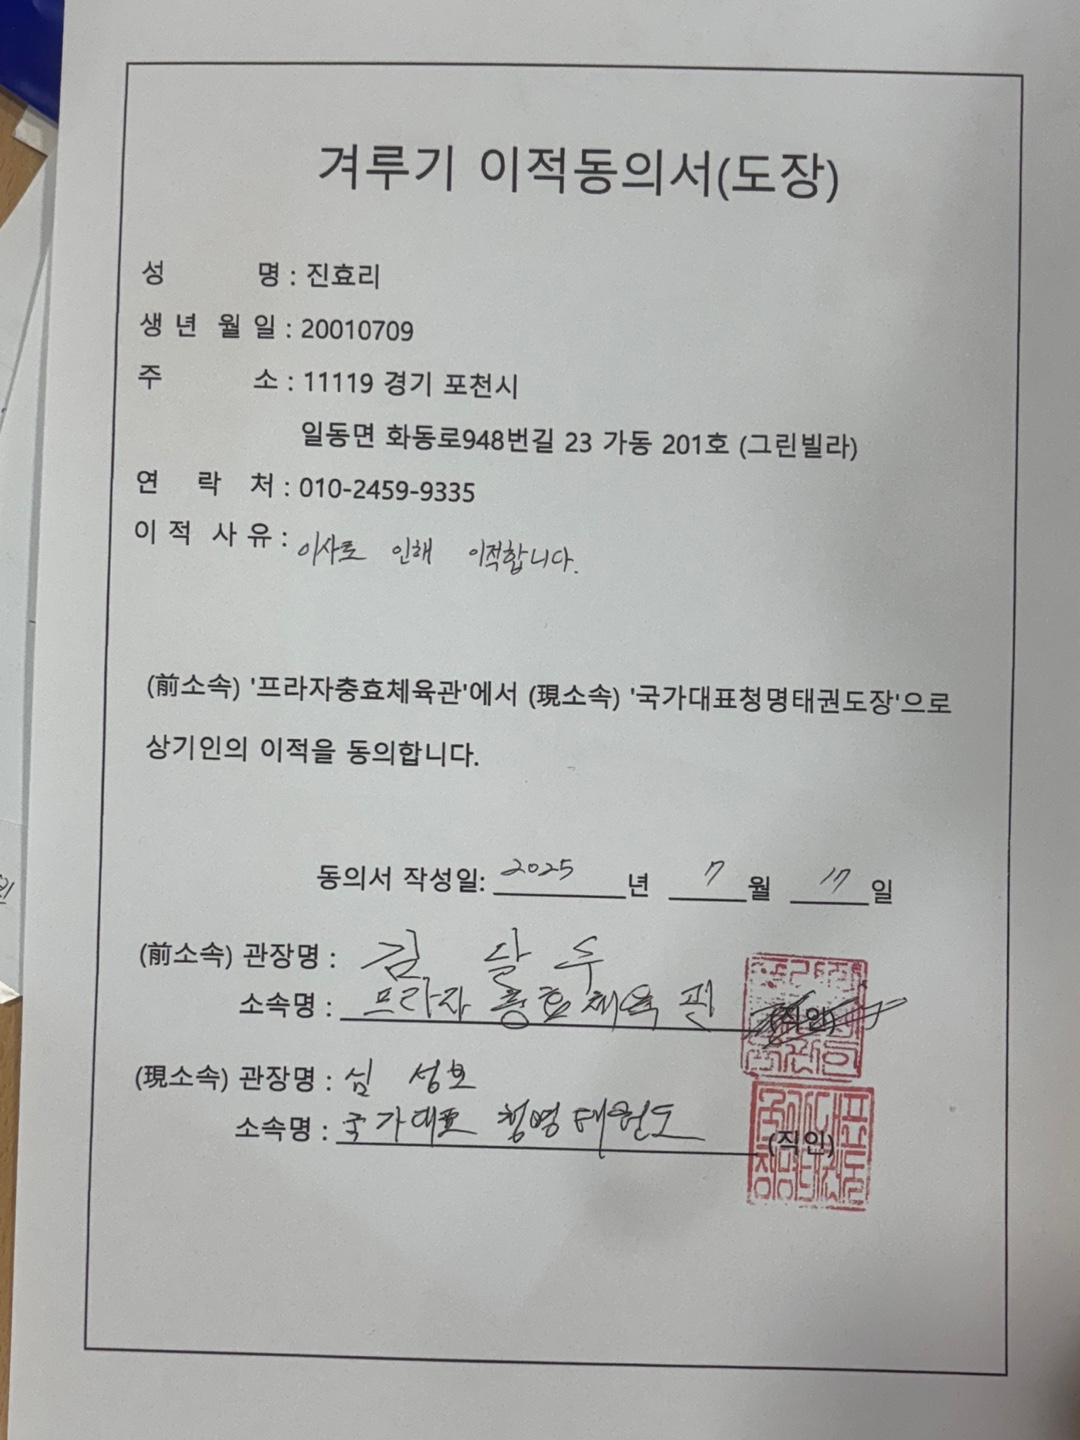 겨루기 이적동의서(도장)
성 명 : 진효리
생 년 월 일 : 20010709
주 소 : 11119 경기 포천시
일동면 화동로948번길 23 가동 201호 (그린빌라)
연 락 처 : 010-2459-9335
이 적 사 유 : 이사로 인해 이적합니다.
(前소속) '프라자충효체육관'에서 (現소속) '국가대표청명태권도장'으로
상기인의 이적을 동의합니다.
동의서 작성일: 2025 년 7 월 17 일
(前소속) 관장명 : 김 달 수
소속명 : 프라자 충효체육관 (직인)
(現소속) 관장명 : 심 성보
소속명 : 국가대표 청명태권도 (직인)